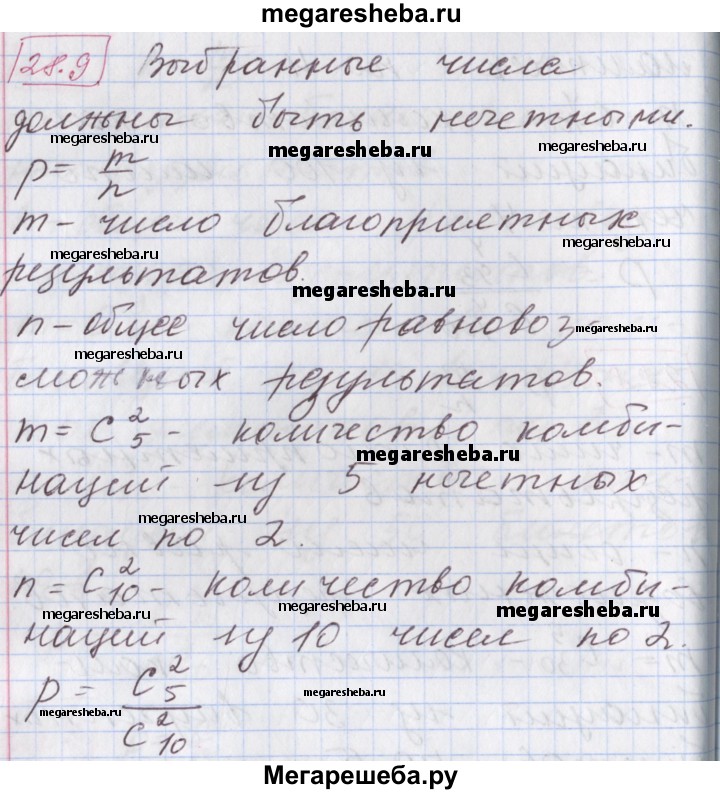 megaresheba.ru
28.9 Выбранные числа
должны быть нечетными.
megaresheba.ru
megaresheba.ru
megaresheba.ru
p = m/n
m - число благоприятных
megaresheba.ru
megaresheba.ru
результатов.
megaresheba.ru
n - общее число равновоз-
megaresheba.ru
megaresheba.ru
можных результатов.
m = C₅² - количество комби-
megaresheba.ru
megaresheba.ru
наций из 5 нечетных
megaresheba.ru
чисел по 2.
n = C₁₀² - количество комби-
megaresheba.ru
megaresheba.ru
наций из 10 чисел по 2.
p = C₅²/C₁₀²
megaresheba.ru
megaresheba.ru
Мегарешеба.ру